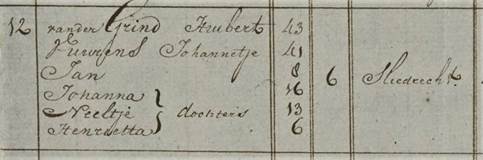 12 van der Grind Huibert 43
Jeurens Johannetje 41
Jan 8 6 Sliedrecht.
Johanna 16
Neeltje dochters 13
Henrietta 6